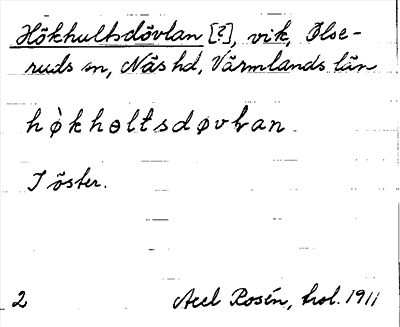 Hökhultsdövlan [?], vik, Ølse-
ruds sn, Näs hd, Värmlands län
hø̀khɵltsdøvlan.
I öster.
2 Axel Rosén, hol. 1911